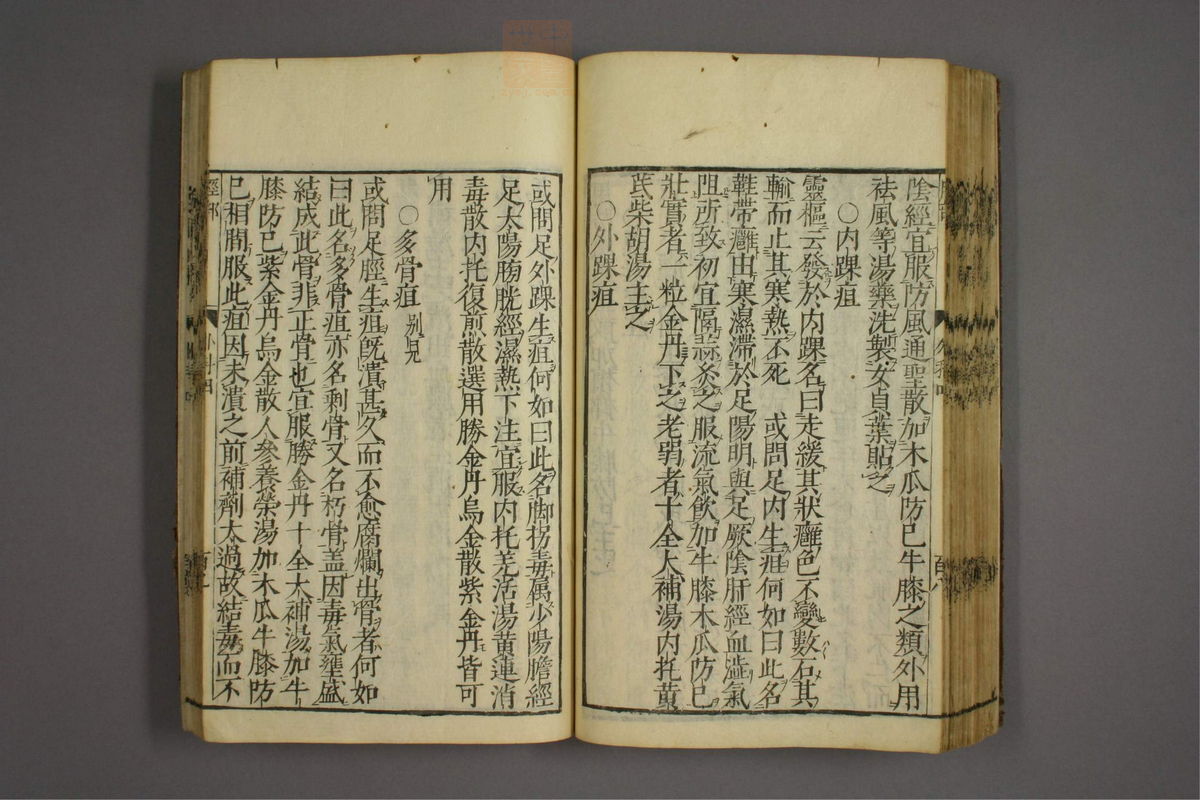 陰經宜服防風通聖散加木瓜防已牛膝之類外用
祛風等湯藥洗製女貞葉貼之
○內踝疽
靈樞云發於內踝名曰走緩其狀癰色不變數石其
輸而止其寒熱不死　或問足內生疽何如曰此名
鞋帶癰由寒濕滯於足陽明與足厥陰肝經血澁氣
阻所致初宜隔蒜灸之服流氣飲加牛膝木瓜防已
壯實者一粒金丹下之老弱者十全大補湯內托黃
茋柴胡湯主之
○外踝疽
或問足外踝生疽何如曰此名脚拐毒属少陽膽經
足太陽膀胱經濕熱下注宜服內托羌活湯黃連消
毒散內托復煎散選用勝金丹烏金散紫金丹皆可
用
○多骨疽　別見
或問足脛生疽旣潰甚久而不愈腐爛出骨者何如
曰此名多骨疽亦名剩骨又名朽骨盖因毒氣壅盛
結成此骨非正骨也宜服勝金丹十全大補湯加牛
膝防已紫金丹烏金散人參養榮湯加木瓜牛膝防
已相間服此疽因未潰之前補劑太過故結毒而不